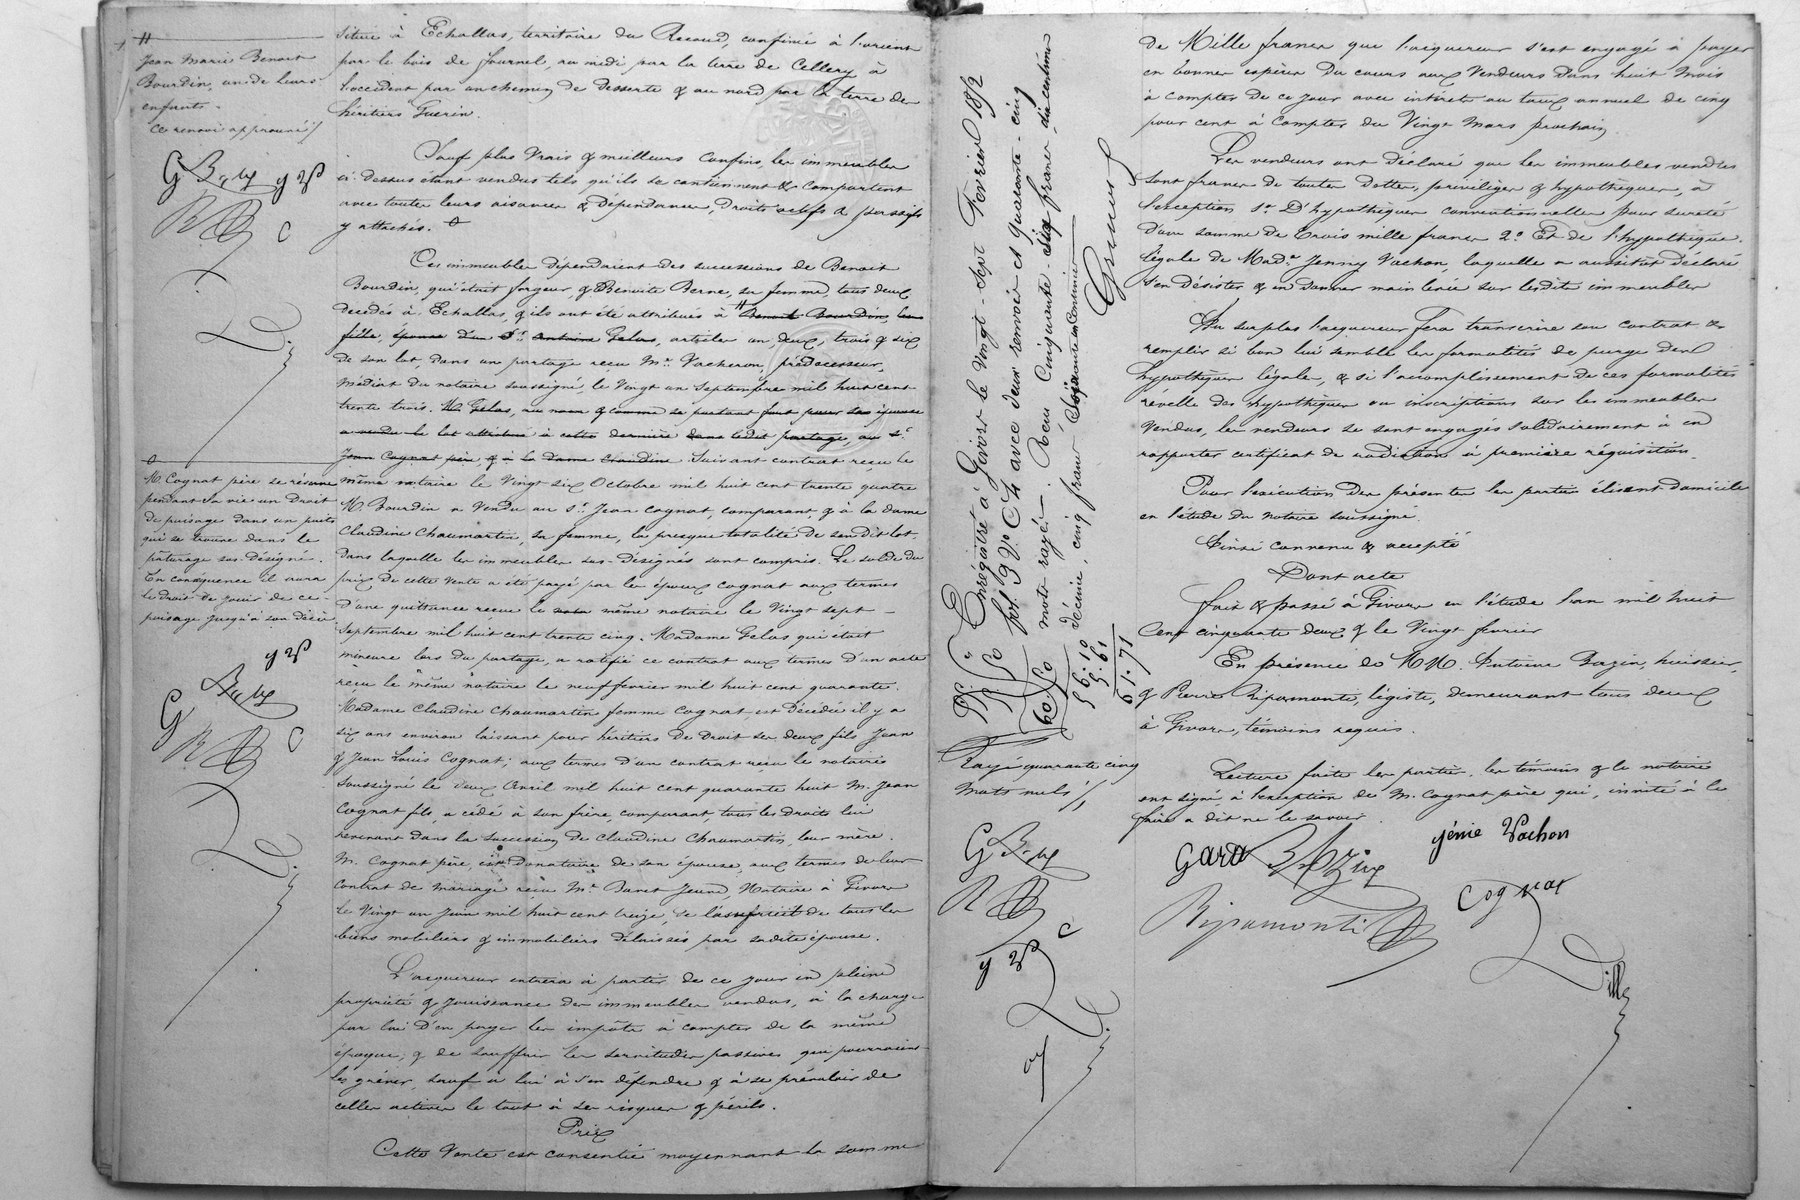 H
Jean Marie Benoit
Bourdin, un de leurs
enfants.
ce renvoi approuvé /
situé à Echallas, territoire du Recoud, confiné à l'orient
par le bois de Journel, au midi par la terre de Cellery à
l'occident par un chemin de desserte & au nord par la terre des
héritiers Guerin.
Sauf plus vrais & meilleurs confins, les immeubles
ci-dessus étant vendus tels qu'ils se contiennent & comportent
avec toutes leurs aisances & dépendances, droits actifs & passifs
y attachés.
Ces immeubles dépendaient des successions de Benoit
Bourdin, qui était forgeur, & Benoite Berne, sa femme, tous deux
décédés à Echallas, & ils ont été attribués à H Benoite Bourdin, leur
fille, épouse d'un Sr. Antoine Gelas, articles un, deux, trois & six
de son lot, dans un partage reçu Me. Vacheron, prédécesseur
médiat du notaire soussigné, le vingt un septembre mil huit cent
trente trois. M. Gelas, au nom & comme se portant fort pour son épouse
a vendu le lot attribué à cette dernière dans ledit partage, au Sr.
Jean Cognat père & à la dame Claudine Suivant contrat reçu le
même notaire le vingt six Octobre mil huit cent trente quatre
M. Bourdin a vendu au Sr. Jean Cognat, comparant, & à la dame
Claudine Chaumartin, sa femme, la presque totalité de son dit lot.
dans laquelle les immeubles sus-désignés sont compris. Le solde du
prix de cette vente a été payé par les époux Cognat aux termes
d'une quittance reçue le même notaire le vingt sept
septembre mil huit cent trente cinq. Madame Gelas qui était
mineure lors du partage, a ratifié ce contrat aux termes d'un acte
reçu le même notaire le neuf février mil huit cent quarante.
Madame Claudine Chaumartin femme Cognat est décédée il y a
six ans environ laissant pour héritiers de droit ses deux fils Jean
& Jean Louis Cognat; aux termes d'un contrat reçu le notaire
soussigné le deux Avril mil huit cent quarante huit M. Jean
Cognat fils, a cédé à son frère, comparant, tous les droits lui
revenant dans la succession de Claudine Chaumartin, leur mère.
M. Cognat père, est Donataire de son épouse, aux termes de leur
contrat de mariage reçu Me. Jeune, Notaire à Givors
le vingt un Juin mil huit cent treize, de l'usufruit de tous les
biens mobiliers & immobiliers délaissés par sadite épouse.
L'acquéreur entrera à partir de ce jour en pleine
propriété & jouissance des immeubles vendus, à la charge
par lui d'en payer les impôts à compter de la même
époque, & de souffrir les servitudes passives qui pourraient
les gréver, sauf à lui à s'en défendre & à se prévaloir de
celles actives le tout à ses risques & périls.
Prix
Cette vente est consentie moyennant la somme
M. Cognat père se réserve
pendant sa vie un droit
de puisage dans un puits
qui se trouve dans le
pâturage sus-désigné.
En conséquence il aura
le droit de jouir de ce
puisage jusqu'à son décès
Enrégistré à Givors le vingt-sept Février 1852
fol. 3 Vo. C 4 avec deux renvois et quarante-cinq
mots rayés. Reçu Cinquante-six francs dix centimes
décime, cinq francs Soixante un centimes
60.50
56.10
5.61
61.71
Rayé quarante cinq
mots nuls /
de Mille francs que l'acquéreur s'est engagé à payer
en bonnes espèces du cours aux vendeurs dans huit mois
à compter de ce jour avec intérêts au taux annuel de cinq
pour cent à compter du vingt Mars prochain.
Les vendeurs ont déclaré que les immeubles vendus
sont francs de toutes dettes, privilèges & hypothèques, à
l'exception 1o. D'hypothèques conventionnelles pour sureté
d'une somme de trois mille francs 2o. Et de l'hypothèque
légale de Made. Jenny Vachon, laquelle a aussitôt déclaré
s'en désister & en donner main levée sur lesdits immeubles
Au surplus l'acquéreur fera transcrire son contrat &
remplir si bon lui semble les formalités de purge des
hypothèques légales, & si l'accomplissement de ces formalités
révelle des hypothèques ou inscriptions sur les immeubles
vendus, les vendeurs se sont engagés solidairement à en
rapporter certificat de radiation à première réquisition.
Pour l'exécution des présentes les parties élisent domicile
en l'étude du notaire soussigné.
Ainsi convenu & accepté
Dont acte
fait & passé à Givors en l'étude l'an mil huit
cent cinquante deux & le vingt février
En présence de MM. Antoine Bazin, huissier,
& Pierre Ripamonti, légiste, demeurant tous deux
à Givors, témoins requis.
Lecture faite les parties, les témoins & le notaire
ont signé à l'exception de M. Cognat père qui, invité à le
faire a dit ne le savoir.
Gara Bazin jénie Vachon
Ripamonti Cognat